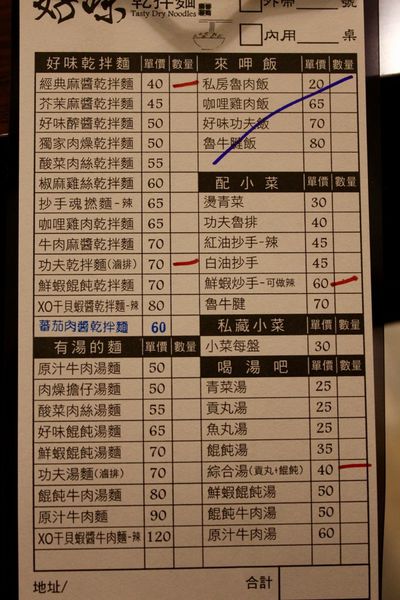 好味 乾拌麵
Tasty Dry Noodles
外帶 號
內用 桌
好味乾拌麵 單價 數量
經典麻醬乾拌麵 40
芥茉麻醬乾拌麵 45
好味醡醬乾拌麵 50
獨家肉燥乾拌麵 50
酸菜肉絲乾拌麵 55
椒麻雞絲乾拌麵 60
抄手魂撚麵-辣 65
咖哩雞肉乾拌麵 65
牛肉麻醬乾拌麵 70
功夫乾拌麵(滷排) 70
鮮蝦餛飩乾拌麵 70
XO干貝蝦醬乾拌麵-辣 80
蕃茄肉醬乾拌麵 60
有湯的麵 單價 數量
原汁牛肉湯麵 50
肉燥擔仔湯麵 50
酸菜肉絲湯麵 55
好味餛飩湯麵 65
鮮蝦餛飩湯麵 70
功夫湯麵(滷排) 70
餛飩牛肉湯麵 80
原汁牛肉麵 90
XO干貝蝦醬牛肉麵-辣 120
來呷飯 單價 數量
私房魯肉飯 20
咖哩雞肉飯 65
好味功夫飯 70
魯牛腱飯 80
配小菜 單價 數量
燙青菜 30
功夫魯排 40
紅油抄手-辣 45
白油抄手 45
鮮蝦炒手-可做辣 60
魯牛腱 70
私藏小菜 單價 數量
小菜每盤 30
喝湯吧 單價 數量
青菜湯 25
貢丸湯 25
魚丸湯 25
餛飩湯 35
綜合湯(貢丸+餛飩) 40
鮮蝦餛飩湯 50
餛飩牛肉湯 50
原汁牛肉湯 60
地址/ 合計